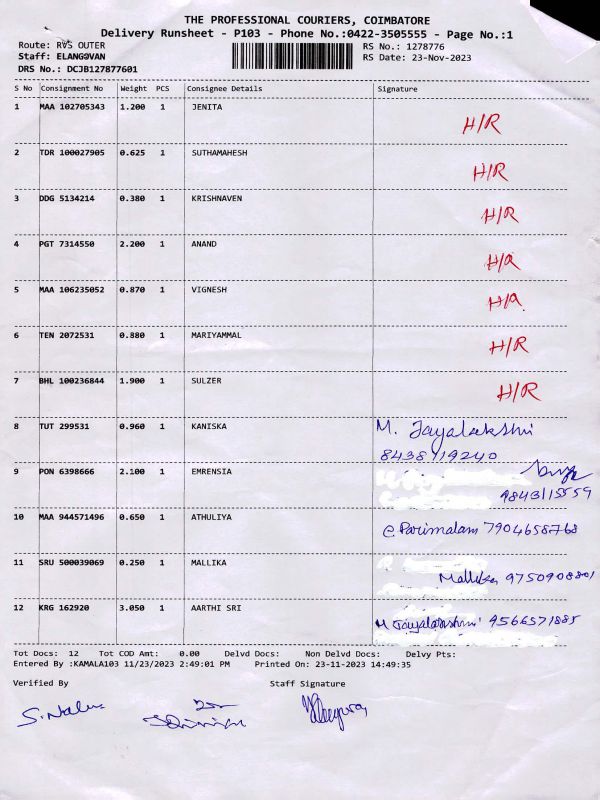 THE PROFESSIONAL COURIERS, COIMBATORE
Delivery Runsheet - P103 - Phone No.:0422-3505555 - Page No.:1
Route: RVS OUTER RS No.: 1278776
Staff: ELANGOVAN RS Date: 23-Nov-2023
DRS No.: DCJB127877601
S No Consignment No Weight PCS Consignee Details Signature
1 MAA 102705343 1.200 1 JENITA H/R
2 TDR 100027905 0.625 1 SUTHAMAHESH H/R
3 DDG 5134214 0.380 1 KRISHNAVEN H/R
4 PGT 7314550 2.200 1 ANAND H/R
5 MAA 106235052 0.870 1 VIGNESH H/R
6 TEN 2072531 0.880 1 MARIYAMMAL H/R
7 BHL 100236844 1.900 1 SULZER H/R
8 TUT 299531 0.960 1 KANISKA M. Jayalakshmi
8438719240
9 PON 6398666 2.100 1 EMRENSIA
9843115559
10 MAA 944571496 0.650 1 ATHULIYA C Parimalam 7904658768
11 SRU 500039069 0.250 1 MALLIKA Mallika 9750908801
12 KRG 162920 3.050 1 AARTHI SRI M Jayalakshmi 9566571885
Tot Docs: 12 Tot COD Amt: 0.00 Delvd Docs: Non Delvd Docs: Delvy Pts:
Entered By :KAMALA103 11/23/2023 2:49:01 PM Printed On: 23-11-2023 14:49:35
Verified By Staff Signature